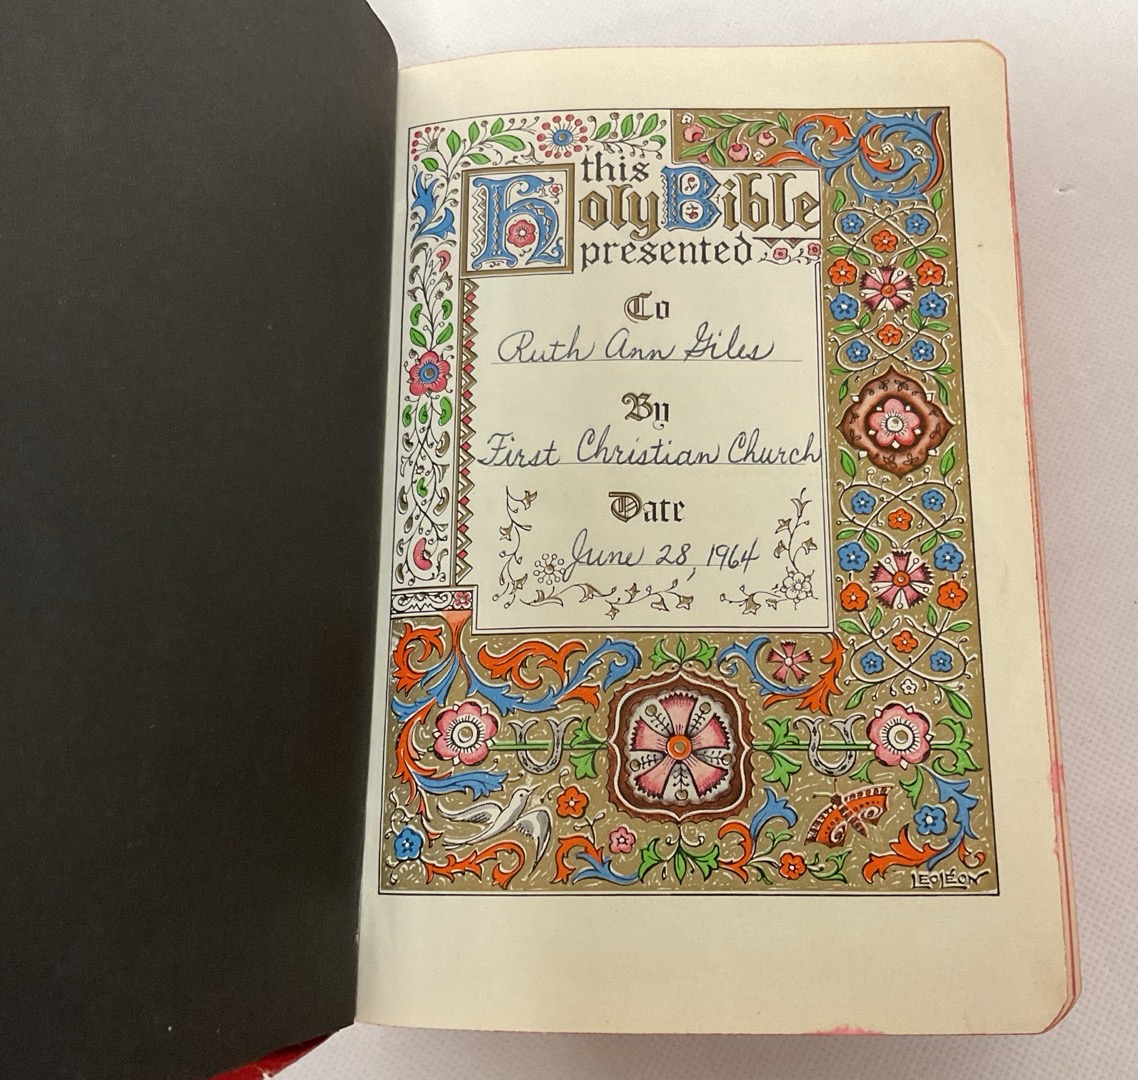 this
Holy Bible
presented
To
Ruth Ann Giles
By
First Christian Church
Date
June 28, 1964
LEO LÉON